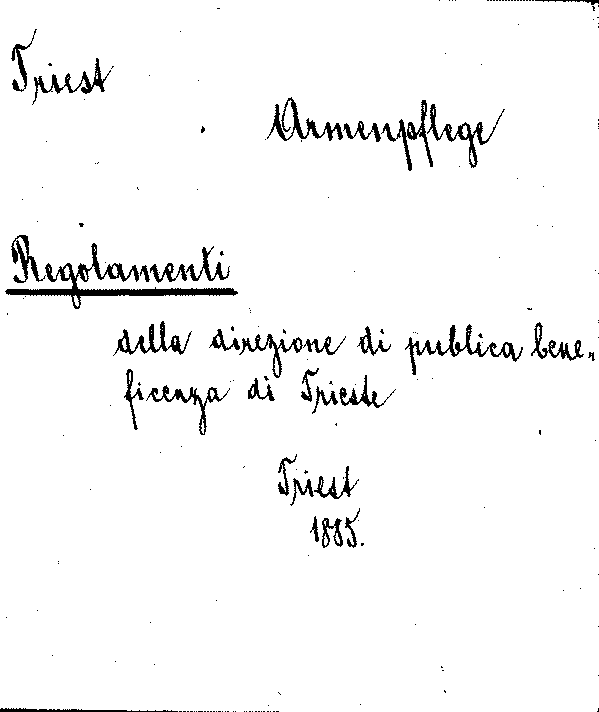 Triest
Armenpflege
Regolamenti
della direzione di publica bene-
ficenza di Trieste
Triest
1885.